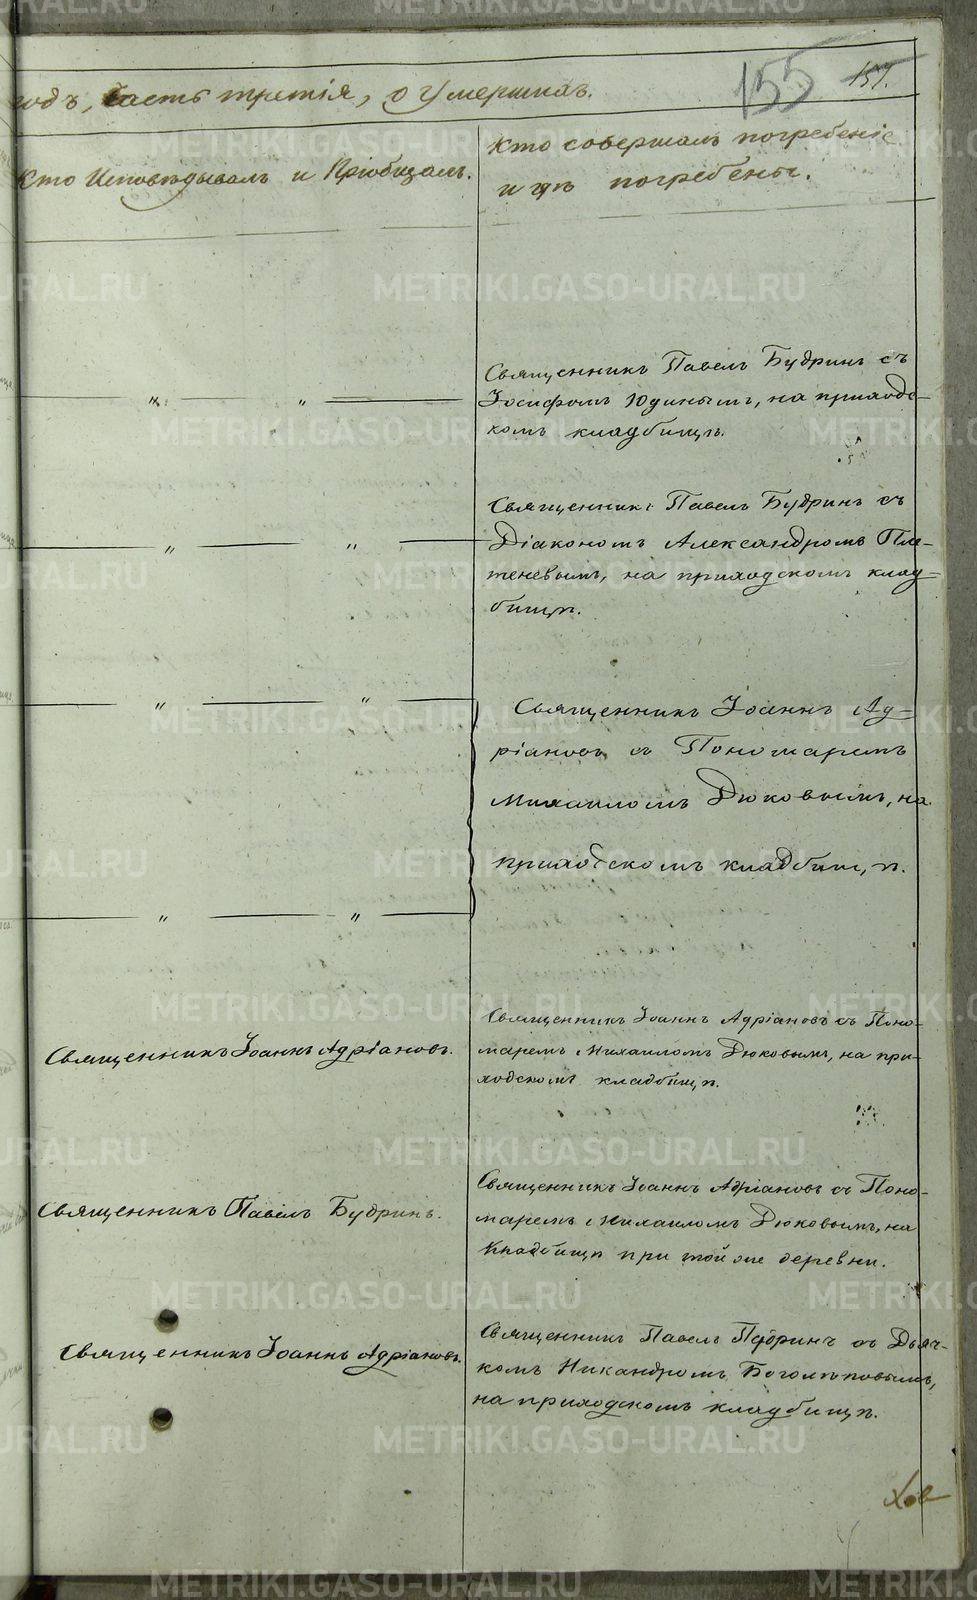 155 157.
годъ, часть третія, о умершихъ.
Кто Исповѣдывалъ и Пріобщалъ.
Кто совершалъ погребеніе
и гдѣ погребены.
" "
Священникъ Павелъ Будринъ съ
Іосифомъ Юдинымъ, на приход-
комъ кладбищѣ.
" "
Священникъ Павелъ Будринъ съ
Діакономъ Александромъ Пле-
теневымъ, на приходскомъ клад-
бищѣ.
" "
Священникъ Іоаннъ Ад-
ріановъ съ Пономаремъ
Михаиломъ Дюковымъ, на
приходскомъ кладбищѣ.
" "
Священникъ Іоаннъ Адріановъ.
Священникъ Іоаннъ Адріановъ съ Поно-
маремъ Михаиломъ Дюковымъ, на при-
ходскомъ кладбищѣ.
Священникъ Павелъ Будринъ.
Священникъ Іоаннъ Адріановъ съ Поно-
маремъ Михаиломъ Дюковымъ, на
Кладбищѣ при той же деревни.
Священникъ Іоаннъ Адріановъ.
Священникъ Павелъ Будринъ съ Дьяч-
комъ Никандромъ Боголѣповымъ,
на приходскомъ кладбищѣ.
METRIKI.GASO-URAL.RU